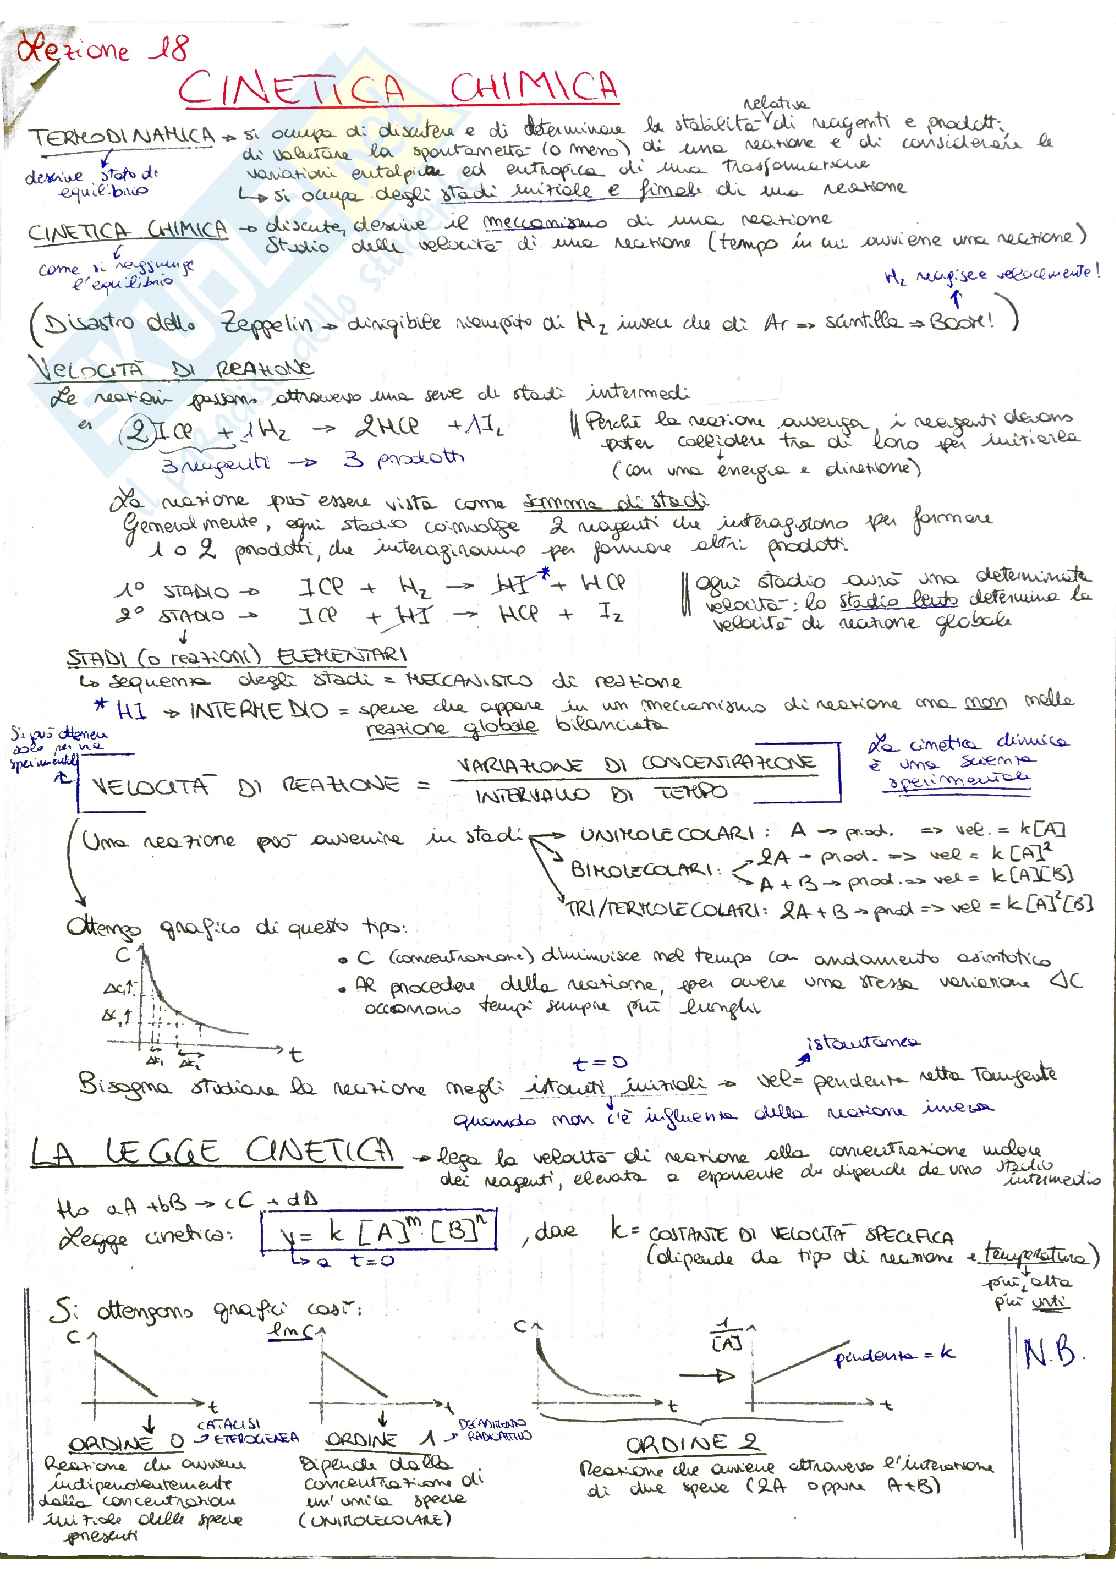 Lezione 18
CINETICA CHIMICA
relativa
TERMODINAMICA → si occupa di discutere e di determinare la stabilità di reagenti e prodotti,
di valutare la spontaneità (o meno) di una reazione e di considerare le
descrive stato di equilibrio
variazioni entalpica ed entropica di una trasformazione
↳ si occupa degli stadi iniziale e finale di una reazione
CINETICA CHIMICA → discute, descrive il meccanismo di una reazione
Studio delle velocità di una reazione (tempo in cui avviene una reazione)
come si raggiunge l'equilibrio
H2 reagisce velocemente!
(Disastro dello Zeppelin → dirigibile riempito di H2 invece che di Ar ⇒ scintilla ⇒ BOOM!)
VELOCITÀ DI REAZIONE
Le reazioni passano attraverso una serie di stadi intermedi
es 2 ICl + 1H2 → 2HCl + 1I2
3 reagenti → 3 prodotti
Perché la reazione avvenga, i reagenti devono
poter collidere tra di loro per iniziarla
(con una energia e direzione)
La reazione può essere vista come somma di stadi
Generalmente, ogni stadio coinvolge 2 reagenti che interagiscono per formare
1 o 2 prodotti, che interagiranno per formare altri prodotti.
1° STADIO → ICl + H2 → HI* + HCl
2° STADIO → ICl + HI → HCl + I2
ogni stadio avrà una determinata
velocità: lo stadio lento determina la
velocità di reazione globale
STADI (o reazioni) ELEMENTARI
↳ sequenza degli stadi = MECCANISMO di reazione
* HI → INTERMEDIO = specie che appare in un meccanismo di reazione ma non nella
reazione globale bilanciata
Si può ottenere
solo per via
sperimentale
VELOCITÀ DI REAZIONE = VARIAZIONE DI CONCENTRAZIONE / INTERVALLO DI TEMPO
La cinetica chimica
è una scienza
sperimentale
Una reazione può avvenire in stadi → UNIMOLECOLARI: A → prod. ⇒ vel. = k[A]
BIMOLECOLARI: 2A → prod. ⇒ vel = k[A]²
A + B → prod. ⇒ vel = k[A][B]
TRI/TERMOLECOLARI: 2A + B → prod ⇒ vel = k[A]²[B]
Ottengo grafico di questo tipo:
C
ΔC1
ΔC2
Δt1
Δt2
t
• C (concentrazione) diminuisce nel tempo con andamento asintotico
• Al procedere della reazione, per avere una stessa variazione ΔC
occorrono tempi sempre più lunghi
t=0
istantanea
Bisogna studiare la reazione negli istanti iniziali → vel = pendenza retta tangente
quando non c'è influenza della reazione inversa
LA LEGGE CINETICA → lega la velocità di reazione alla concentrazione molare
dei reagenti, elevata a esponente che dipende da uno stadio
intermedio
Ho aA + bB → cC + dD
Legge cinetica: v = k [A]ᵐ · [B]ⁿ, dove k = COSTANTE DI VELOCITÀ SPECIFICA
↳ a t=0
(dipende da tipo di reazione e temperatura)
più alta
più urti
Si ottengono grafici così:
C
t
ln C
t
C
t
1/[A]
t
pendenza = k
N.B.
ORDINE 0 → CATALISI ETEROGENEA
Reazione che avviene
indipendentemente
dalla concentrazione
iniziale delle specie
presenti
ORDINE 1 → DECADIMENTO RADIOATTIVO
Dipende dalla
concentrazione di
un'unica specie
(UNIMOLECOLARE)
ORDINE 2
Reazione che avviene attraverso l'interazione
di due specie (2A oppure A+B)